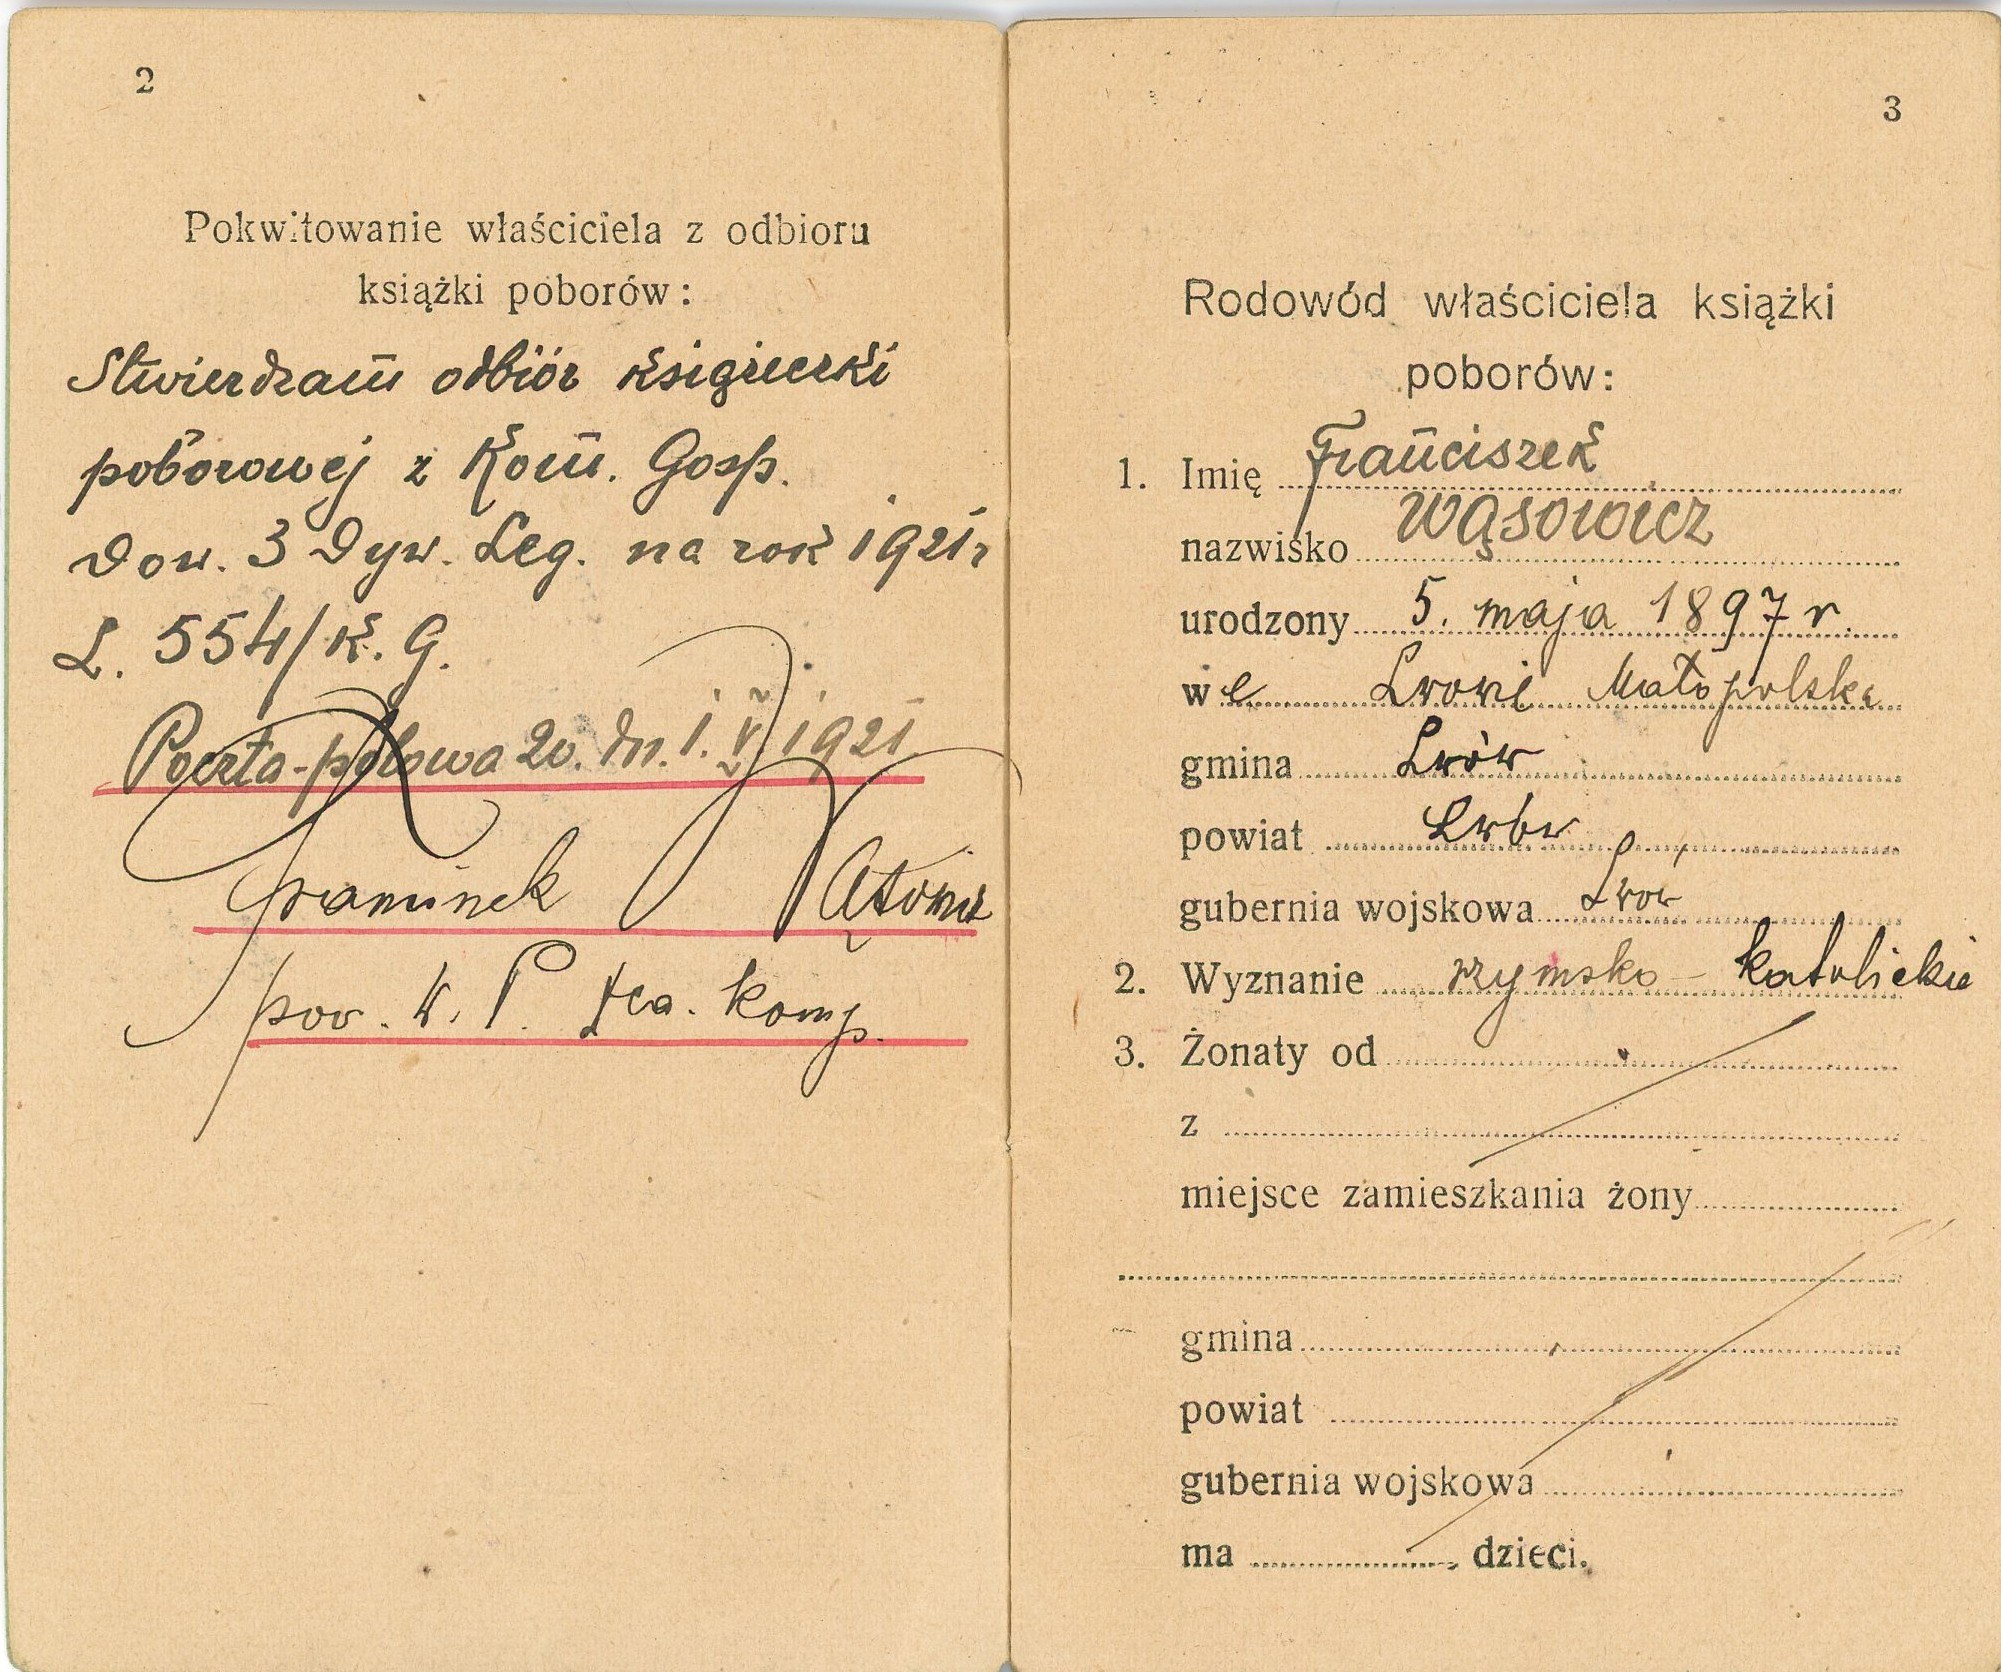 2
Pokwitowanie właściciela z odbioru
książki poborów:
Stwierdzam odbiór książeczki
poborowej z Kom. Gosp.
Dow. 3 Dyw. Leg. na rok 1921 r
L. 554/K. G.
Poczta-polowa 20. dn. 1. V 1921
por. W. P. komp.
3
Rodowód właściciela książki
poborów:
1. Imię Franciszek
nazwisko Wąsowicz
urodzony 5. maja 1897 r.
we Lwowie Małopolska
gmina Lwów
powiat Lwów
gubernia wojskowa Lwów
2. Wyznanie rzymsko-katolickie
3. Żonaty od
z
miejsce zamieszkania żony
gmina
powiat
gubernia wojskowa
ma dzieci.